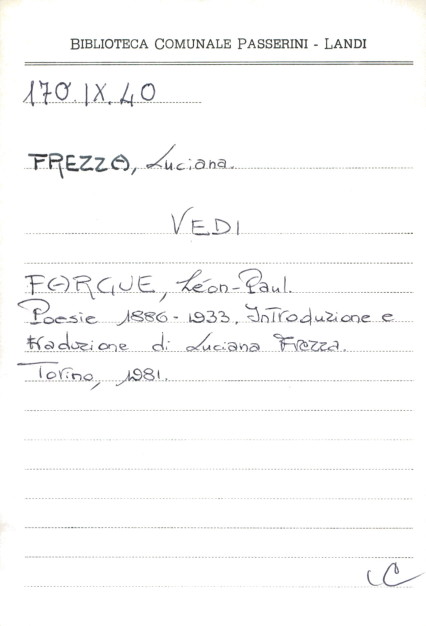 BIBLIOTECA COMUNALE PASSERINI - LANDI
170.IX.40
FREZZA, Luciana.
VEDI
FARGUE, Léon-Paul.
Poesie 1886-1933. Introduzione e
traduzione di Luciana Frezza.
Torino, 1981.